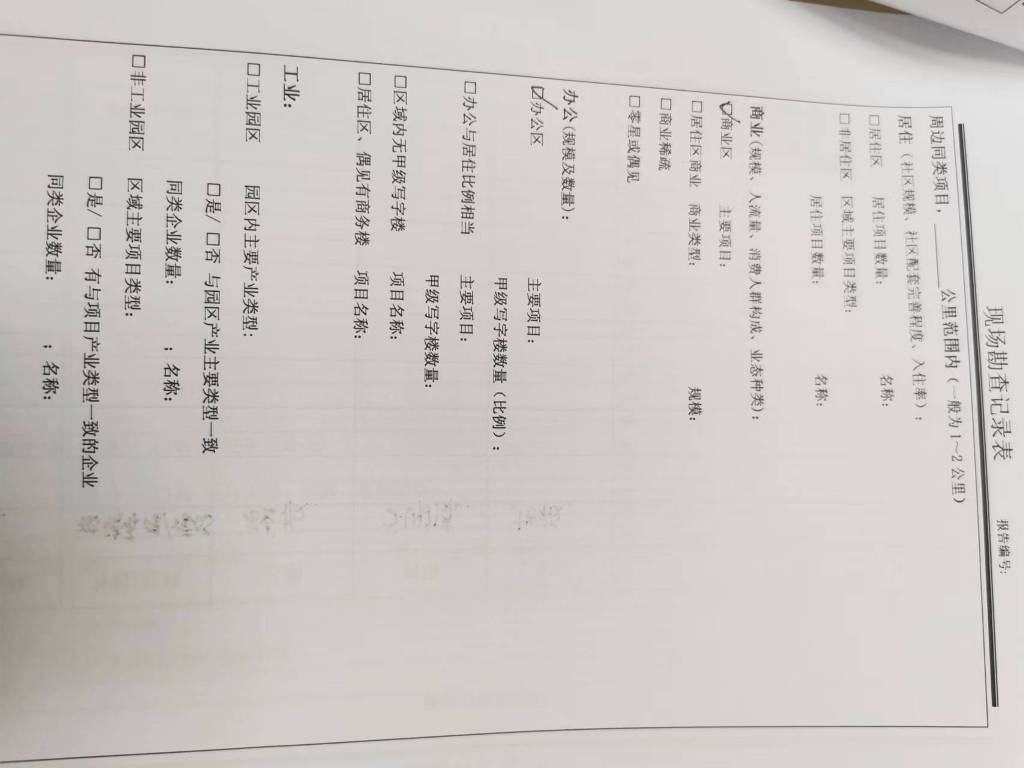 现场勘查记录表
报告编号:
周边同类项目，________公里范围内（一般为1～2公里）
居住（社区规模、社区配套完善程度、入住率）：
□居住区 居住项目数量： 名称：
□非居住区 区域主要项目类型：
居住项目数量： 名称：
商业(规模、人流量、消费人群构成、业态种类)：
☑商业区 主要项目：
□居住区商业 商业类型： 规模：
□商业稀疏
□零星或偶见
办公(规模及数量)：
☑办公区 主要项目：
甲级写字楼数量（比例）：
□办公与居住比例相当 主要项目：
甲级写字楼数量：
□区域内无甲级写字楼 项目名称：
□居住区、偶见有商务楼 项目名称：
工业：
□工业园区 园区内主要产业类型：
□是/ □否 与园区产业主要类型一致
同类企业数量： ；名称：
□非工业园区 区域主要项目类型：
□是/ □否 有与项目产业类型一致的企业
同类企业数量： ；名称：